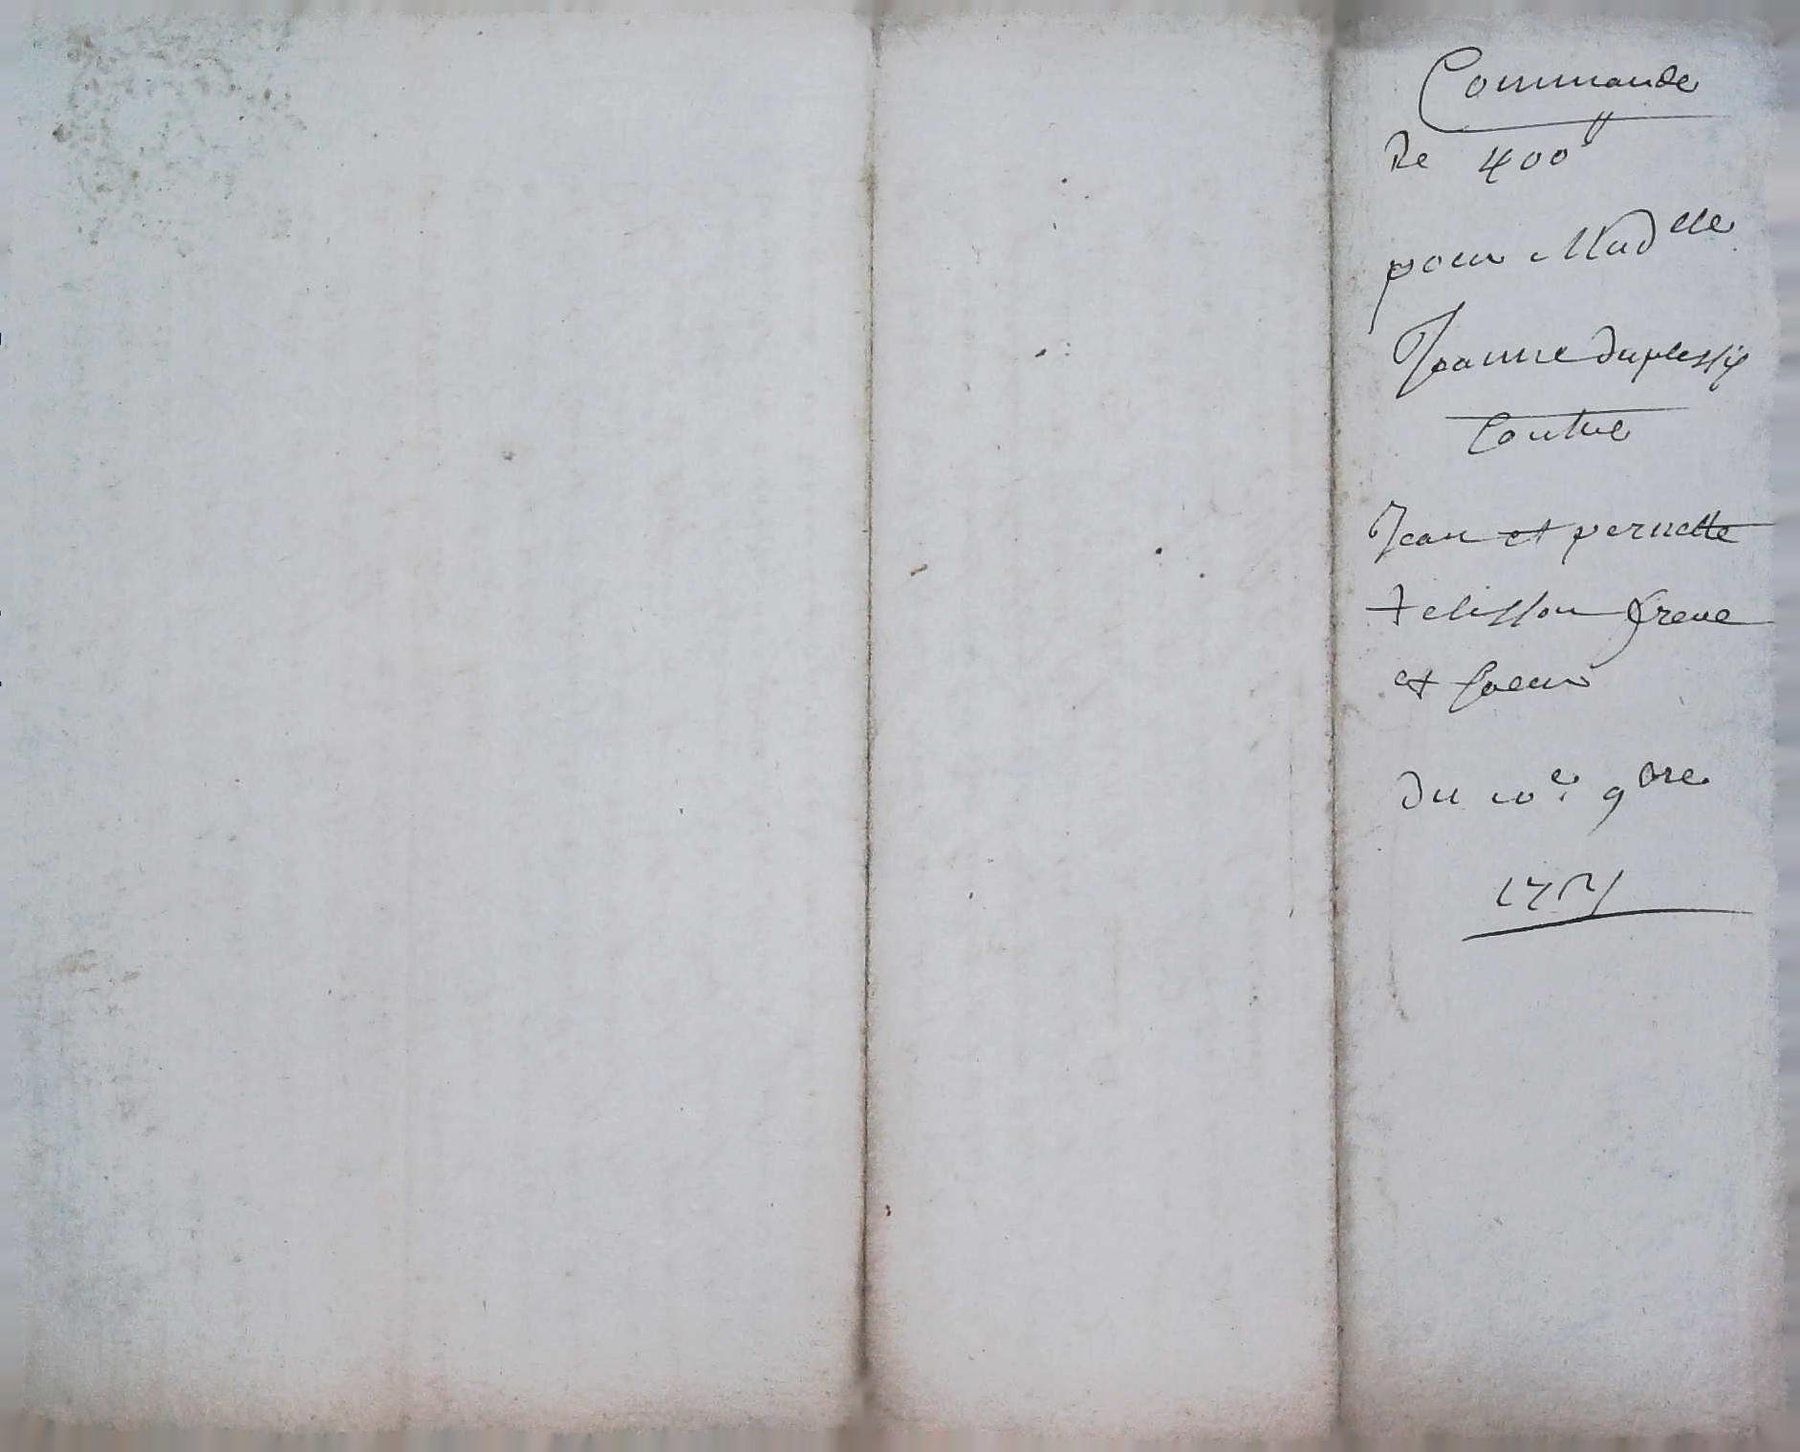 Commande
de 400 ₶
pour Mad.elle
Jeanne duplessis
Contre
Jean et pernette
Felisson frere
et soeur
du 10e. 9bre